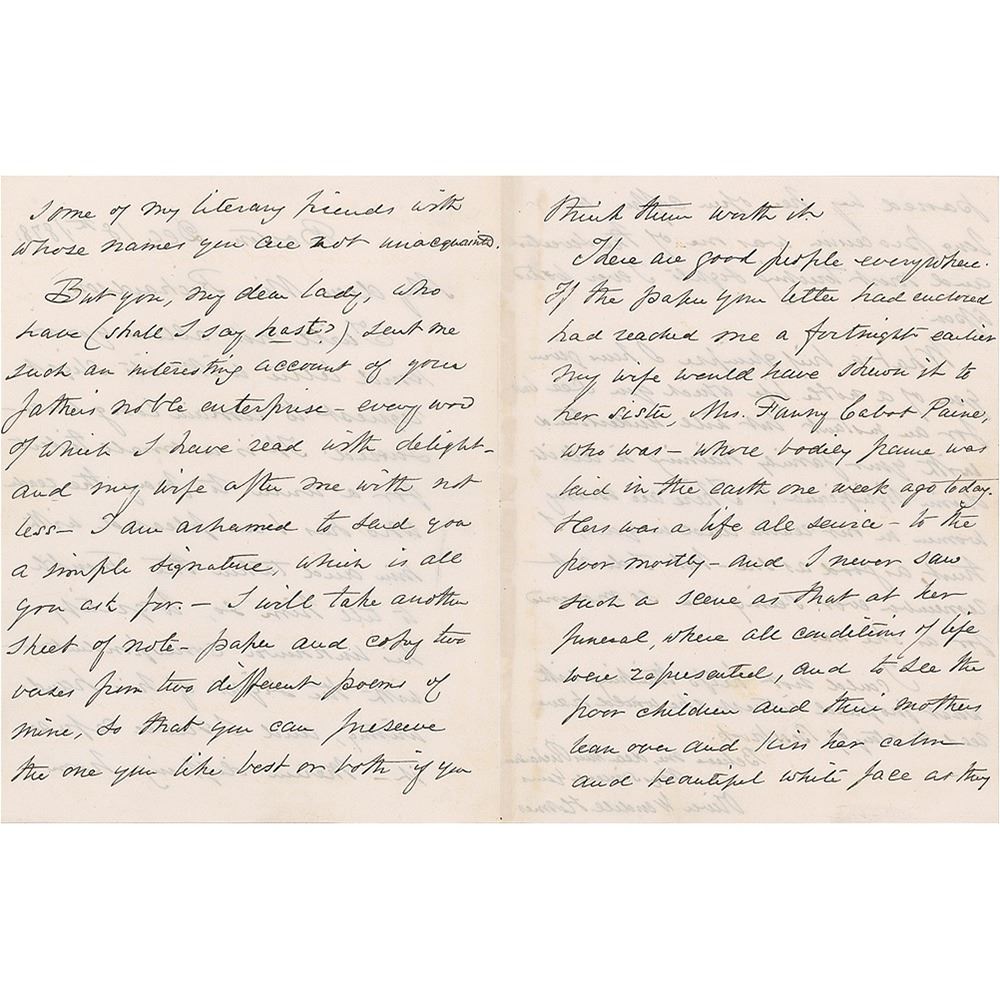 some of my literary friends with
whose names you are not unacquainted.
But you, my dear lady, who
have (shall I say hast?) sent me
such an interesting account of your
father's noble enterprise – every word
of which I have read with delight –
and my wife after me with not
less – I am ashamed to send you
a simple signature, which is all
you ask for. – I will take another
sheet of note-paper and copy two
verses from two different poems of
mine, so that you can preserve
the one you like best or both if you
think them worth it.
There are good people everywhere.
If the paper your letter had enclosed
had reached me a fortnight earlier
my wife would have shown it to
her sister, Mrs. Fanny Cabot Paine,
who was – whose bodily frame was
laid in the earth one week ago today.
Hers was a life all service – to the
poor mostly – and I never saw
such a scene as that at her
funeral, where all conditions of life
were represented, and to see the
poor children and their mothers
lean over and kiss her calm
and beautiful white face as they